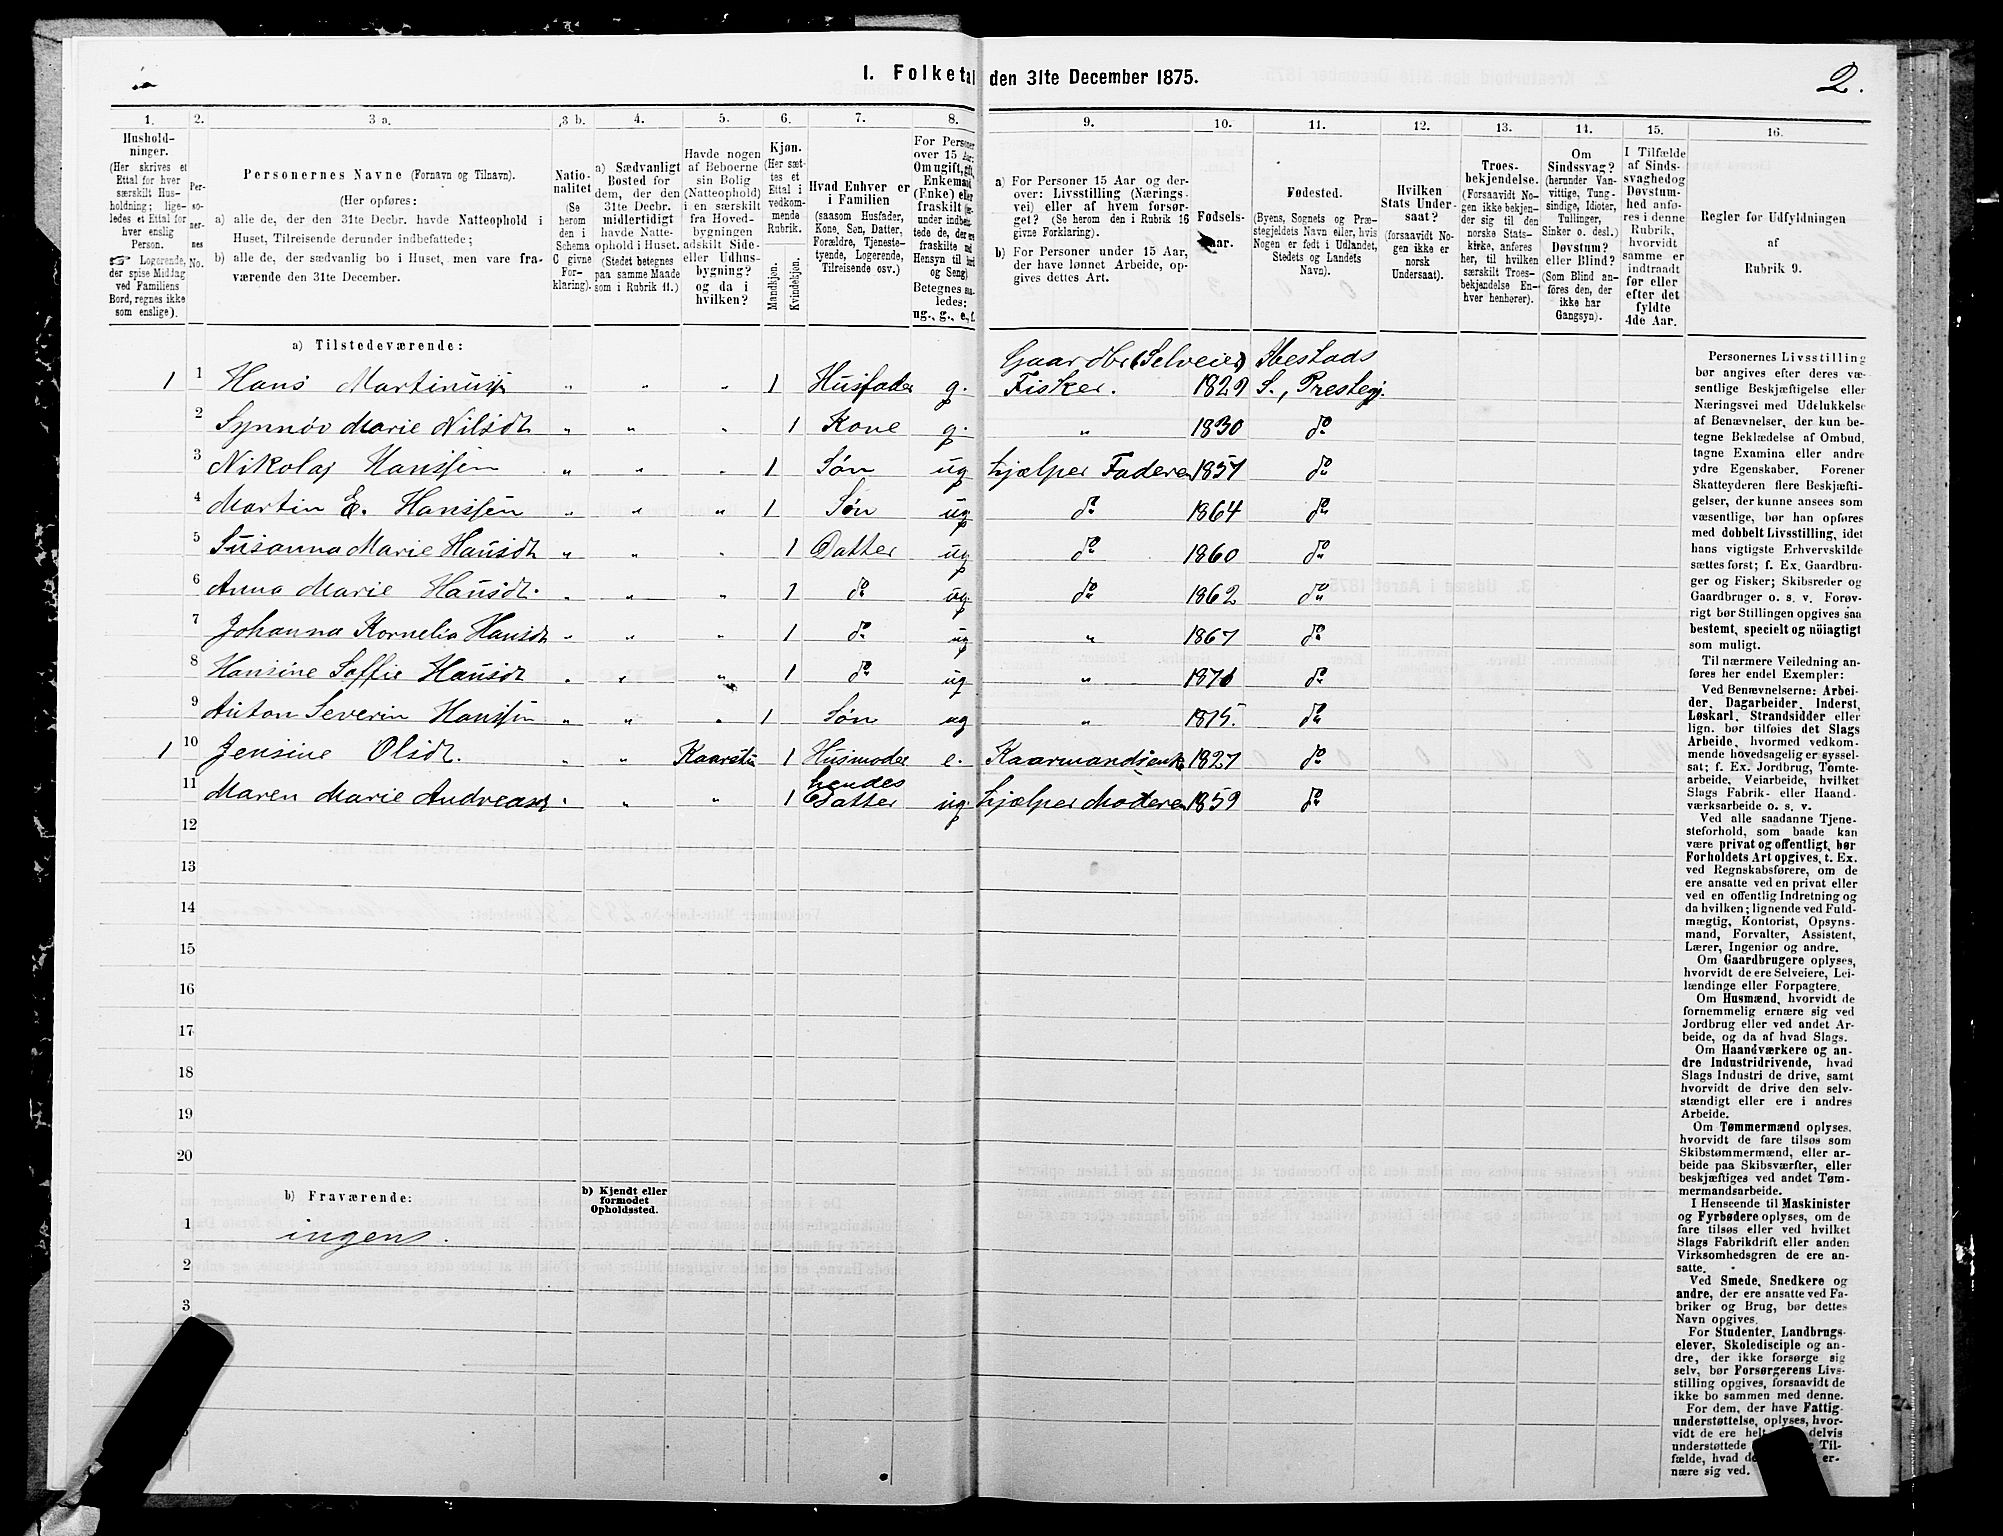 I. Folketal den 31te December 1875.
2.
1.
2.
3 a.
3 b.
4.
5.
6.
7.
8.
9.
10.
11.
12.
13.
14.
15.
16.
Hushold-
ninger.
(Her skrives et
Ettal for hver
særskilt Hus-
holdning; lige-
ledes et Ettal for
hver enslig
Person.
☞ Logerende,
der spise Middag
ved Familiens
Bord, regnes ikke
som enslige).
Per-
so-
ner-
nes
No.
Personernes Navne (Fornavn og Tilnavn).
(Her opføres:
a) alle de, der den 31te Decbr. havde Natteophold i
Huset, Tilreisende derunder indbefattede;
b) alle de, der sædvanlig bo i Huset, men vare fra-
værende den 31te December.
Natio-
nalitet
(Se
herom
den i
Schema
C givne
For-
klaring).
a) Sædvanligt
Bosted for
dem, der den
31te Decbr.
midlertidigt
havde Natte-
ophold i Huset.
(Stedet betegnes
paa samme Maade
som i Rubrik 11.)
Havde nogen
af Beboerne
sin Bolig
(Natteophold)
i en særskilt
fra Hoved-
bygningen
adskilt Side-
eller Udhus-
bygning?
og da i
hvilken?
Kjøn.
(Her sæt-
tes et
Ettal i
vedkom-
mende
Rubrik.
Mandkjøn.
Kvindekjøn.
Hvad Enhver er
i Familien
(saasom Husfader,
Kone, Søn, Datter,
Forældre, Tjeneste-
tyende, Logerende,
Tilreisende osv.)
For Personer
over 15 Aar:
Om ugift, gift,
Enkemand
(Enke) eller
fraskilt
Betegnes saa-
ledes:
ug., g., e., f.
a) For Personer 15 Aar og der-
over: Livsstilling (Nærings-
vei) eller af hvem forsør-
get? (Se herom den i Rubrik 16
givne Forklaring).
b) For Personer under 15 Aar,
der have lønnet Arbeide, op-
gives dettes Art.
Fødsels-
aar.
Fødested.
(Byens, Sognets og Præ-
stegjeldets Navn eller, hvis
Nogen er født i Udlandet,
Stedets og Landets
Navn).
Hvilken
Stats Under-
saat?
(forsaavidt No-
gen ikke er
norsk
Undersaat).
Troes-
bekjendelse.
(Forsaavidt No-
gen ikke bekjen-
der sig til den
norske Stats-
kirke, anføres
her, til hvilken
særskilt Troes-
bekjendelse En-
hver henhører).
Om
Sindssvag?
(herunder Van-
vittige, Tung-
sindige, Idioter,
Tullinger,
Sinker o. desl.)
Døvstum?
eller Blind?
(Som Blind an-
føres den, der
ikke har
Gangsyn).
I Tilfælde
af Sinds-
svaghed og
Døvstum-
hed anfø-
res i denne
Rubrik,
hvorvidt
samme er
indtraadt
før eller
efter det
fyldte
4de Aar.
Regler for Udfyldningen
af
Rubrik 9.
a) Tilstedeværende:
Gaardbr (Selveier) Ibestads
1 1 Hans Martinuss " " " 1 Husfader g. Fisker. 1829 S., Prestegj.
2 Synnøv Marie Nilsdt " " " 1 Kone g. " 1830 do
3 Nikolaj Hanssen " " " 1 Søn ug hjælper Faderen 1857 do
4 Martin E. Hanssen " " " 1 Søn ug do 1864 do
5 Susanna Marie Hansdt " " " 1 Datter ug do 1860 do
6 Anna Marie Hansdt. " " " 1 do ug do 1862 do
7 Johanna Kornelia Hansdt " " " 1 do ug " 1867 do
8 Hansine Soffie Hansdt " " " 1 do ug " 1871 do
9 Anton Severin Hanssen " " " 1 Søn ug " 1875. do
1 10 Jensine Olsdt. " " Kaarstu 1 Husmoder e. Kaarmandsenke 1827 do
hendes
11 Maren Marie Andreasd " " " 1 Datter ug. hjælper Moderen 1859 do
12
13
14
15
16
17
18
19
20
b) Fraværende:
b) Kjendt eller
formodet
Opholdssted.
1 ingens.
2
3
Personernes Livsstilling
bør angives efter deres væ-
sentlige Beskjæftigelse eller
Næringsvei med Udelukkelse
af Benævnelser, der kun be-
tegne Beklædelse af Ombud,
tagne Examina eller andre
ydre Egenskaber. Forener
Skatteyderen flere Beskjæfti-
gelser, der kunne ansees som
væsentlige, bør han opføres
med dobbelt Livsstilling, idet
hans vigtigste Erhvervskilde
sættes først; f. Ex. Gaardbru-
ger og Fisker; Skibsreder og
Gaardbruger o. s. v. Forøv-
rigt bør Stillingen opgives saa
bestemt, specielt og nöiagtigt
som muligt.
Til nærmere Veiledning an-
føres her endel Exempler:
Ved Benævnelserne: Arbei-
der, Dagarbeider, Inderst,
Løskarl, Strandsidder eller
lign. bør tilføies det Slags
Arbeide, hvormed vedkom-
mende hovedsagelig er syssel-
sat; f. Ex. Jordbrug, Tømte-
arbeide, Veiarbeide, hvilket
Slags Fabrik- eller Haand-
værksarbeide o. s. v.
Ved alle saadanne Tjene-
steforhold, som baade kan
være privat og offentligt, bør
Forholdets Art opgives, t. Ex.
ved Regnskabsførere, om de
ere ansatte ved en privat eller
ved en offentlig Indretning og
da hvilken; lignende ved Fuld-
mægtig, Kontorist, Opsyns-
mand, Forvalter, Assistent,
Lærer, Ingeniør og andre.
Om Gaardbrugere oplyses,
hvorvidt de ere Selveiere, Lei-
lændinge eller Forpagtere.
Om Husmænd, hvorvidt de
fornemmelig ernære sig ved
Jordbrug eller ved andet Ar-
beide, og da af hvad Slags.
Om Haandværkere og an-
dre Industridrivende, hvad
Slags Industri de drive, samt
hvorvidt de drive den selv-
stændigt eller ere i andres
Arbeide.
Om Tømmermænd oplyses,
hvorvidt de fare tilsøs som
Skibstømmermænd, eller ar-
beide paa Skibsværfter, eller
beskjæftiges ved andet Tøm-
mermandsarbeide.
I Henseende til Maskinister
og Fyrbødere oplyses, om de
fare tilsøs eller ved hvilket
Slags Fabrikdrift eller anden
Virksomhedsgren de ere an-
satte.
Ved Smede, Snedkere og
andre, der ere ansatte ved Fa-
briker og Brug, bør dettes
Navn opgives.
For Studenter, Landbrugs-
elever, Skoledisciple og an-
dre, der ikke forsørge sig
selv, bør Forsørgerens Livs-
stilling opgives, forsaavidt de
ikke bo sammen med denne.
For dem, der have Fattig-
understøttelse, oplyses, hvor-
vidt de ere helt delvis
understøttede Til-
fælde, hvad de er-
nære sig ved.